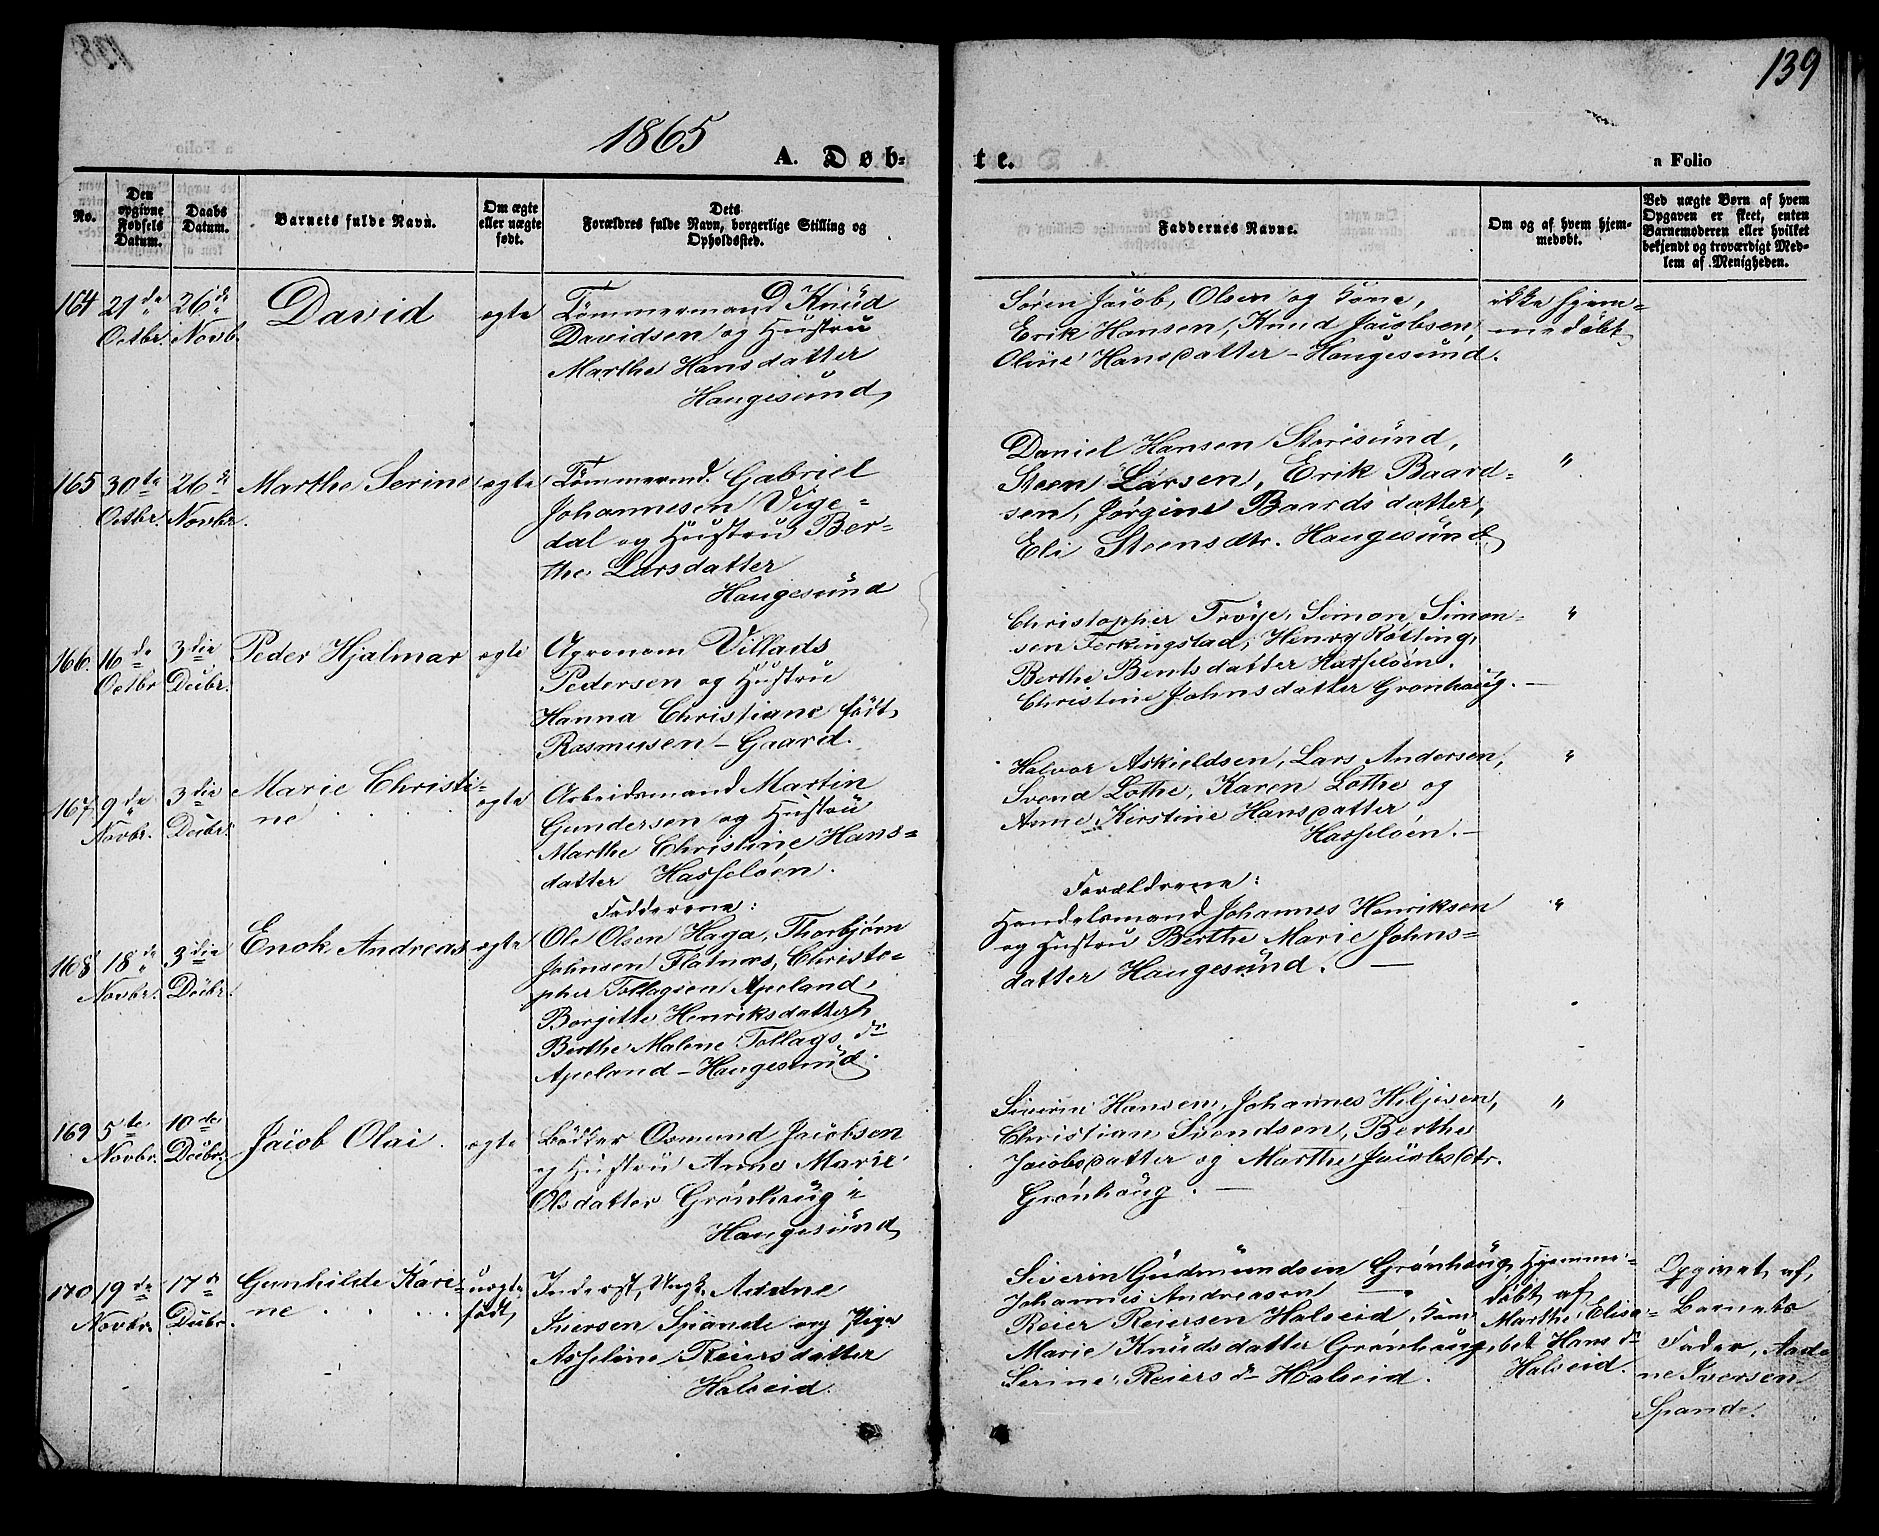 139
1865
A. Døb-
te.
a Folio
No.
Den
opgivne
Fødsels
Datum.
Daabs
Datum.
Barnets fulde Navn.
Om ægte
eller uægte
født.
Dets
Forældres fulde Navn, borgerlige Stilling og
Opholdssted.
Faddernes Navne.
Om og af hvem hjem-
medøbt.
Ved uægte Børn af hvem
Opgaven er skeet, enten
Barnemoderen eller hvilket
bekjendt og troværdigt Med-
lem af Menigheden.
164 21de 26de David ægte
Octbr. Novb.
Tömmermand Knud
Davidsen og Hustru
Marthe Hansdatter
Haugesund
Søren Jacob Olsen og Kone,
Erik Hansen, Knud Jacobsen
Oline Hansdatter - Haugesund.
ikke hjem-
medøbt
165 30te 26de Marthe Serine ægte
Octbr. Novbr.
Tømmermd. Gabriel
Johannesen Vige-
dal og Hustru Ber-
the Larsdatter
Haugesund
Daniel Hansen Storesund,
Steen Larsen, Erik Baard-
sen, Jørgine Baardsdatter,
Eli Steensdtr. Haugesund
"
166. 16de 3die Peder Hjalmar ægte
Octbr Decbr.
Agronom Villads
Pedersen og Hustru
Hanna Christiane født
Rasmusen - Gaard.
Christopher Trøye, Simon Simon-
sen Ferkingstad, Henry Køtting,
Berthe Bentsdatter Hasseløen.
Christine Johnsdatter Grønhaug. -
"
167 9de 3die Marie Christi-
ne
ægte
Novbr. Decbr.
Arbeidsmand Martin
Gundersen og Hustru
Marthe Christine Hans-
datter Hasseløen.
Halvor Askieldsen, Lars Andersen,
Svend Lothe, Karen Lothe og
Anne Kirstine Hansdatter
Hasseløen. -
"
168 18de 3die Enok Andreas ægte
Novbr. Decbr.
Fadderene:
Ole Olsen Haga, Thorbjørn
Johnsen Flatnæs, Christo-
pher Tollagsen Apeland,
Borgitte Henriksdatter,
Berthe Malene Tollags dr
Apeland - Haugesund.
Forældrene:
Handelsmand Johannes Henriksen
og Hustru Berthe Marie Johns-
datter Haugesund. -
"
169 5te 10de Jacob Olai. ægte
Novbr. Decbr.
Bødker Osmund Jacobsen
og Hustru Anne Marie
Olsdatter Grønhaug i
Haugesund
Siverin Hansen, Johannes Hiljesen,
Christian Svendsen, Berthe
Jacobsdatter og Marthe Jacobsdtr.
Grønhaug. -
"
170 19de 17de Gunhilde Kari-
ne
uægte
født
Novbr. Decbr.
Inderst, Ungk. Aadne
Iversen Spande og Pige
Asseline Reiersdatter
Halseid.
Siverin Gudmundsen Grønhaug,
Johannes Andreasen
Reier Reiersen Halseid, Kone
Marie Knudsdatter Grønhaug,
Serine Reiers dr Halseid.
Hjemme-
døbt af
Marthe Elisa-
bet Hans dr
Halseid.
Opgivet af
Barnets
Fader, Aad-
ne Iversen
Spande.